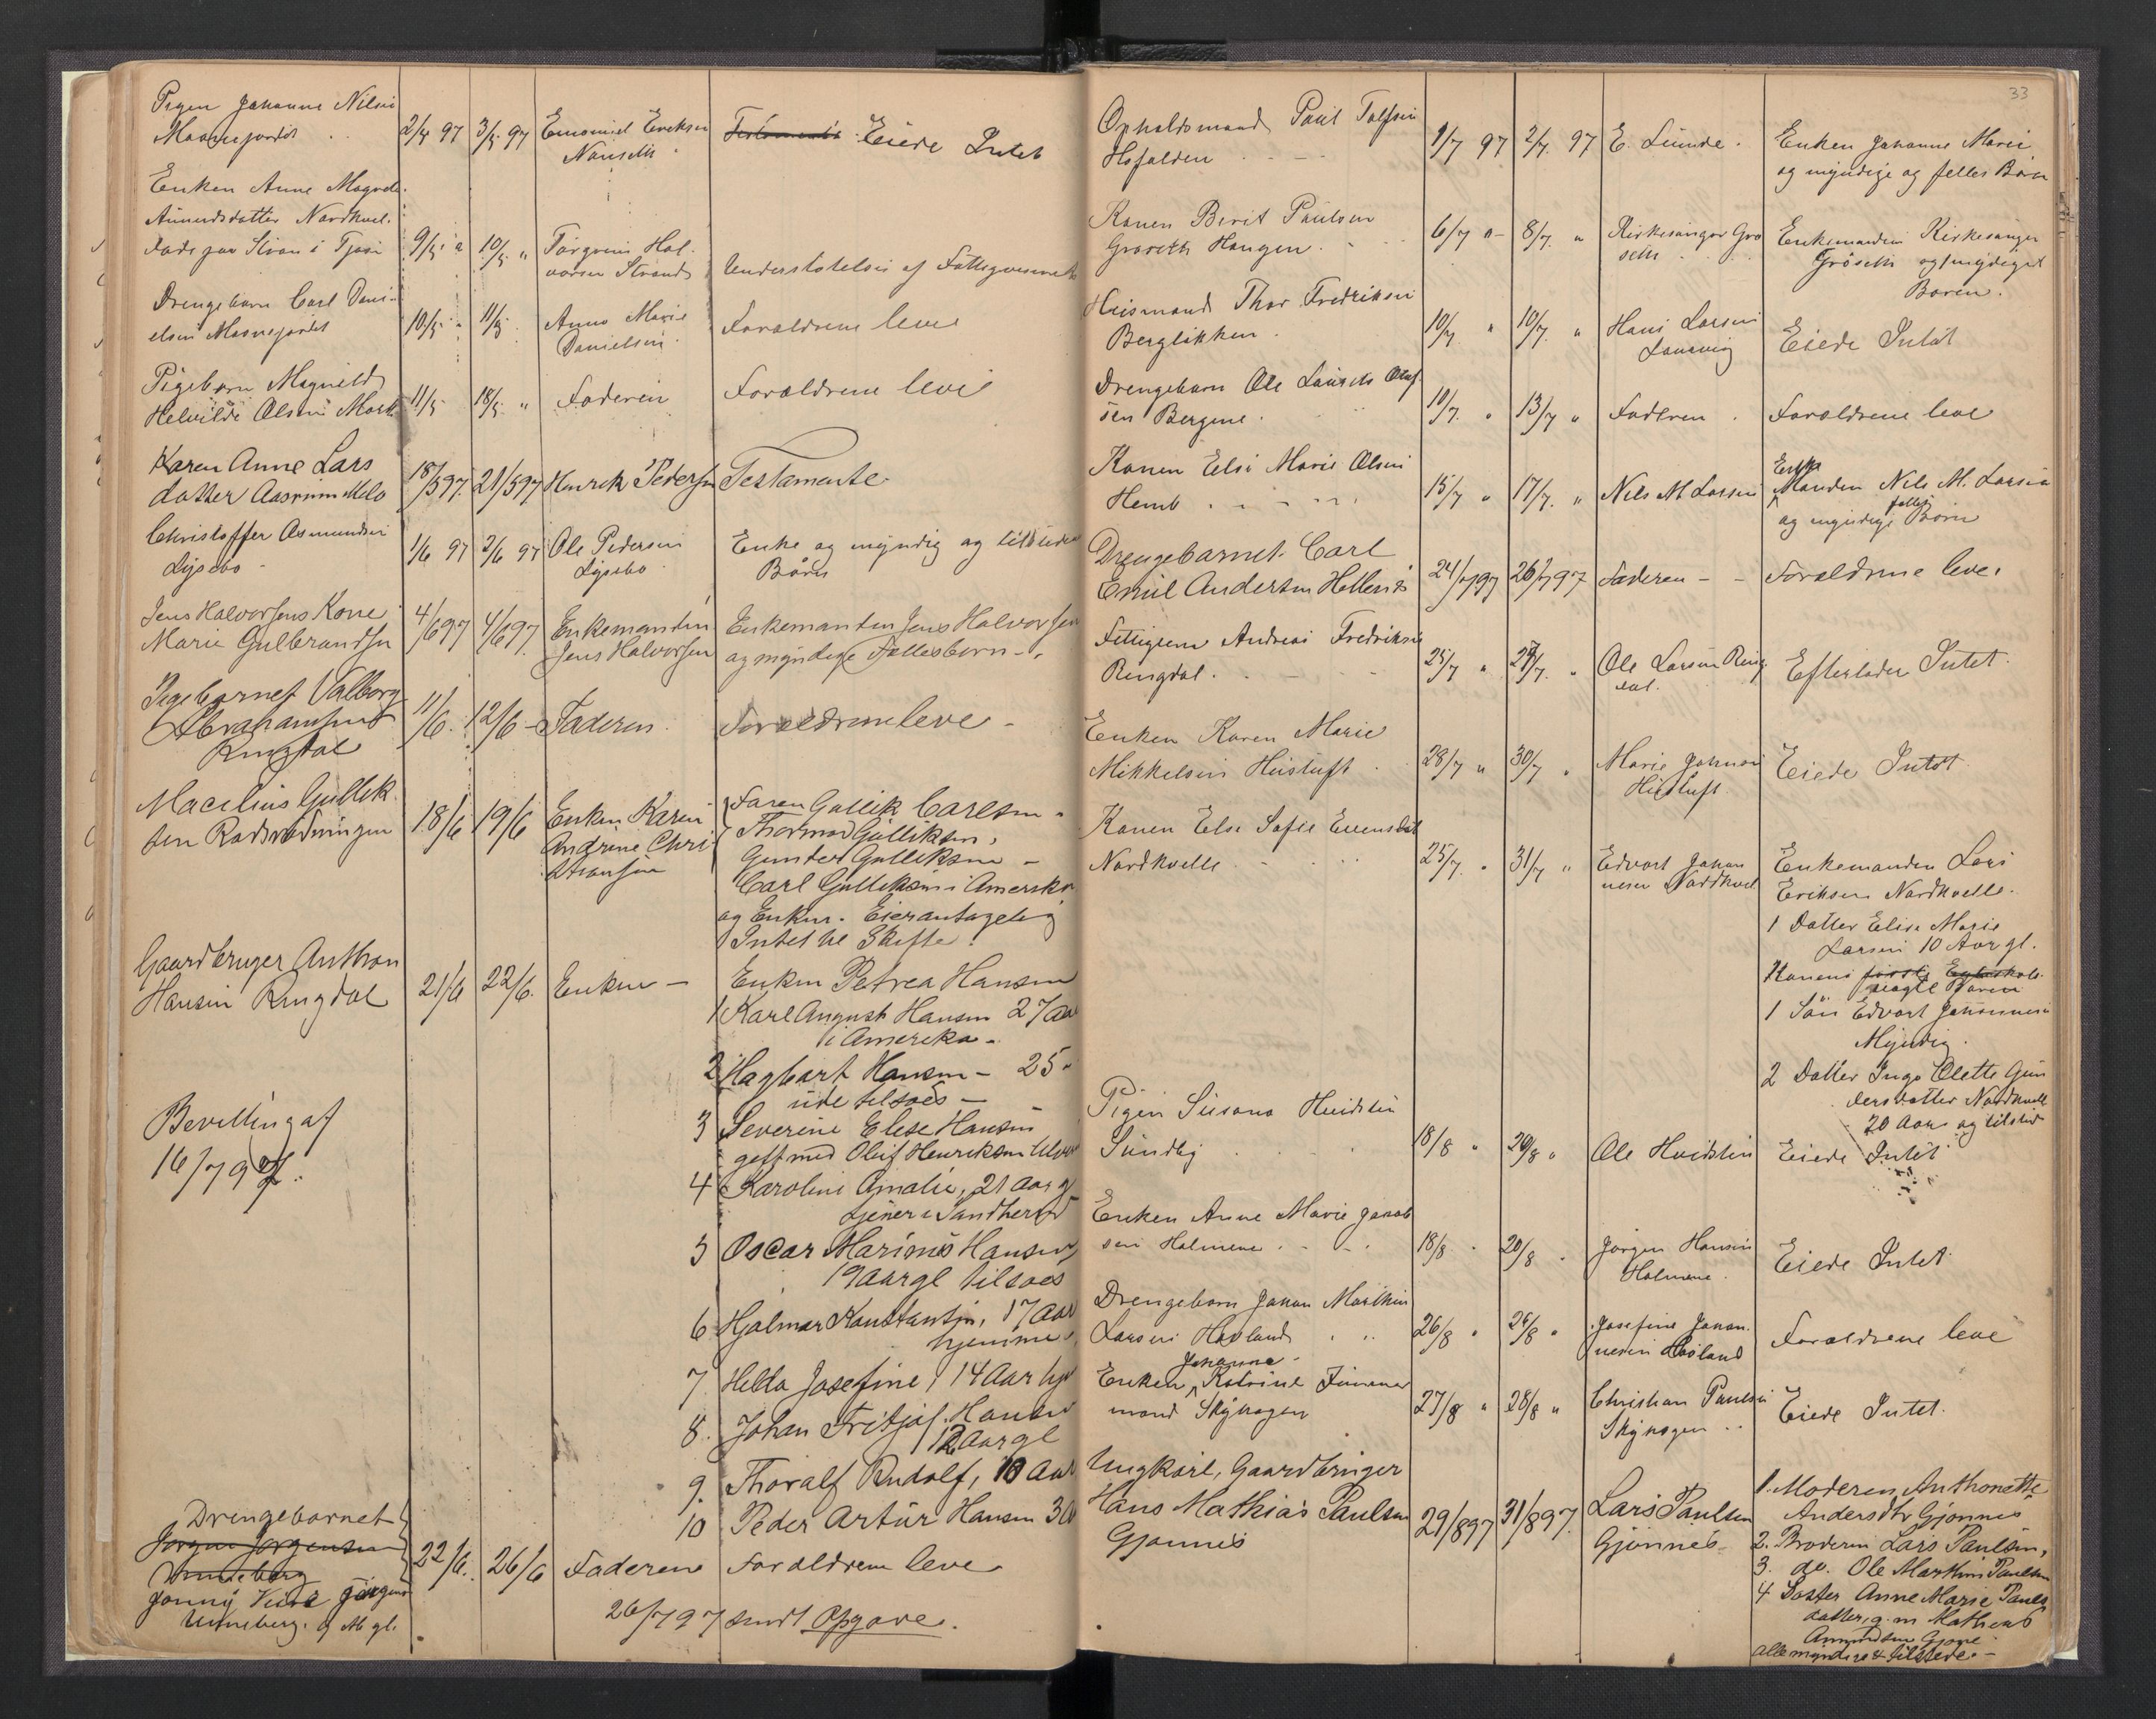 Pigen Johanne Nilsen
Maanejordet . . 2/5 97 3/5 97 Emomiel Eriksen Eiede Intet
Nauseth
Enken Anne Magrete
Amundsdatter Nordkvel.
døde paa Stran i Tjose 9/5 " 10/5 " Torgrim Hal-
vorsen Strand Understøtelse af Fattigvæsenet
Drengebarn Carl Dani-
elsen Maanejordet 10/5 " 11/5 Anne Marie Foraldrene leve
Danielsen
Pigebarn Magnild
Helvilde Olsen Mork 11/5 18/5 " Faderen Foraldrene leve
Karen Anne Lars
datter Aasrum Melø 18/5 97. 21/5 97 Henrik Pedersen Testamente
Christoffer Asmundsen
Lysebo 1/6 97 2/6 97 Ole Pedersen Enke og myndig og tilstede
Lysebo Børn
Jens Halvorsens Kone
Marie Gulbrandsen 4/6 97 4/6 97. Enkemanden Jens Halvorsen Enkemanden Jens Halvorsen
og myndige Fællesbørn
Pigebarnet Valborg
Abrahamsen
Ringdal 11/6. 12/6 - Faderen. Foraldrene leve -
Macelius Gullik
sen Rødsrødningen 18/6 19/6 Enken Karen
Andrine Chri
stiansen
Faren Gullik Carlsen
Thormod Gulliksen,
Gunder Gulliksen -
Carl Gulliksen i Amerika
og Enken. Eier antagelig
Intet at Skifte.
Gaardbruger Anthon
Hansen Ringdal 21/6 22/6. Enken - Enken Petrea Hansen
1 Karl August Hansen 27 Aar
i Amerika -
2 Hagbart Hansen - 25 "
ude tilsøes -
Bevilling af
16/7 97.
3 Severine Elise Hansen
gift med Oluf Henriksen
4 Karoline Amalie, 21 Aar gl
tjener i Sandherred
5 Oscar Marinus Hansen,
19 Aar gl tilsøes
6 Hjalmar Konstantin, 17 Aar
hjemme
7 Hilda Josefine, 14 Aar hje
8. Johan Fritjof Hansen
12 Aar gl
9. Thoralf Rudolf, 10 Aar
10 Peder Artur Hansen 3
Drengebarnet
Jørgen Jørgensen
Unneberg
Jonny Jørgens
Unneberg. 9 M gl. 22/6. 26/6 Faderen Foraldrene leve
26/7 97 sendt Opgave.
33
Opholdsmand Paul
1/7 97 2/7. 97 E. Lunde. Enken Johanne Marie
og myndige og felles Børn
Konen Berit Paulsen
Grøseth Haugen. 6/7 " 8/7. " Kirkesanger Grø
seth Enkemanden Kirkesanger
Grøseth og myndiged
Boren.
Husmand Thor Fredriksen
Bergløkken 10/7 " 10/7. " Hans Larsen Eiede Intet
Drengebarn Ole Olaf
sen Bergene. 10/7. " 13/7 " Faderen . Foraldrene leve
Konen Else Marie Olsen
Hemb 15/7 " 17/7. " Nils M Larsen Enke
Manden Nils M. Larsen
og myndige felles Børn
Drengebarnet Carl
Emil Andersen Hellenes 24/7 97 26/7 97 Faderen - - Foraldrene leve.
Fattiglem Andreas Fredriksen
Ringdal. 25/7 " 27/7. " Ole Larsen Ring
dal. Efterlader Intet.
Enken Karen Marie
Mikkelsen Hustuft . 28/7 " 30/7 " Marie Johnsen Eiede Intet
Hustuft
Konen Else Sofie Evensdat
Nordkvelle. 25/7. " 31/7 " Edvart Johan
nesen Nordkvel
Enkemanden Lars
Eriksen Nordkvelle.
1 Datter Elise Marie
Larsen 10 Aar gl.
Konens første Egteskab
uægte Boren
1 Søn Edvart Johannesen
Myndig.
2 Datter Inga Olette Gun
dersdatter Nordkvell
20 Aar og tilsted
Pigen Susana Huidsten
Sundby 18/8 " 20/8 " Ole Hvidsten Eiede Intet
Enken Anne Marie Jacob
sen Holmene 18/8 " 20/8 " Jørgen Hansen Eiede Intet
Holmene
Drengebarn Johan Marthin
Larsen Høland 26/8 " 26/8 " Josefine Johan
nesen Høland Foraldrene leve
Johanne
Enken Katrine Timmer
mand Skyhagen 27/8 " 28/8 " Christian Paulsen Eiede Intet.
Skyhagen
Ungkarl, Gaardbruger
Hans Mathias Paulsen
Gjønnes 29/8 97 31/8 97. Lars Paulsen
Gjønnes
1. Moderen, Anthonette
Andersdtr Gjønnes
2. Broderen Lars Paulsen,
3. do. Ole Martin Paulsen
4 Søster Anne Marie Pauls
datter, g. m Mathias
Amundsen
alle myndige & tilstede. -